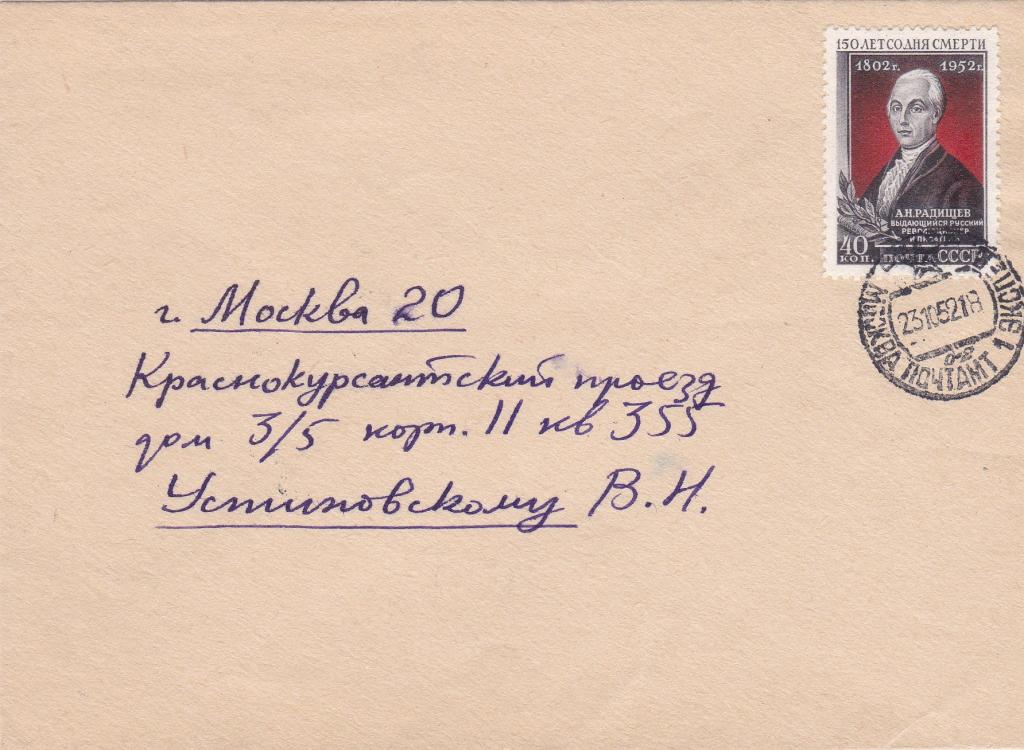 150 ЛЕТ СО ДНЯ СМЕРТИ
1802 г. 1952 г.
А.Н.РАДИЩЕВ
ВЫДАЮЩИЙСЯ РУССКИЙ
РЕВОЛЮЦИОНЕР
И ПИСАТЕЛЬ
40
КОП. ПОЧТА СССР
МОСКВА ПОЧТАМТ 1
23105218
г. Москва 20
Краснокурсантский проезд
дом 3/5 корп. 11 кв 355
Устиновскому В.Н.